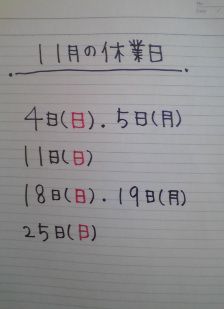 11月の休業日
4日(日).5日(月)
11日(日)
18日(日).19日(月)
25日(日)